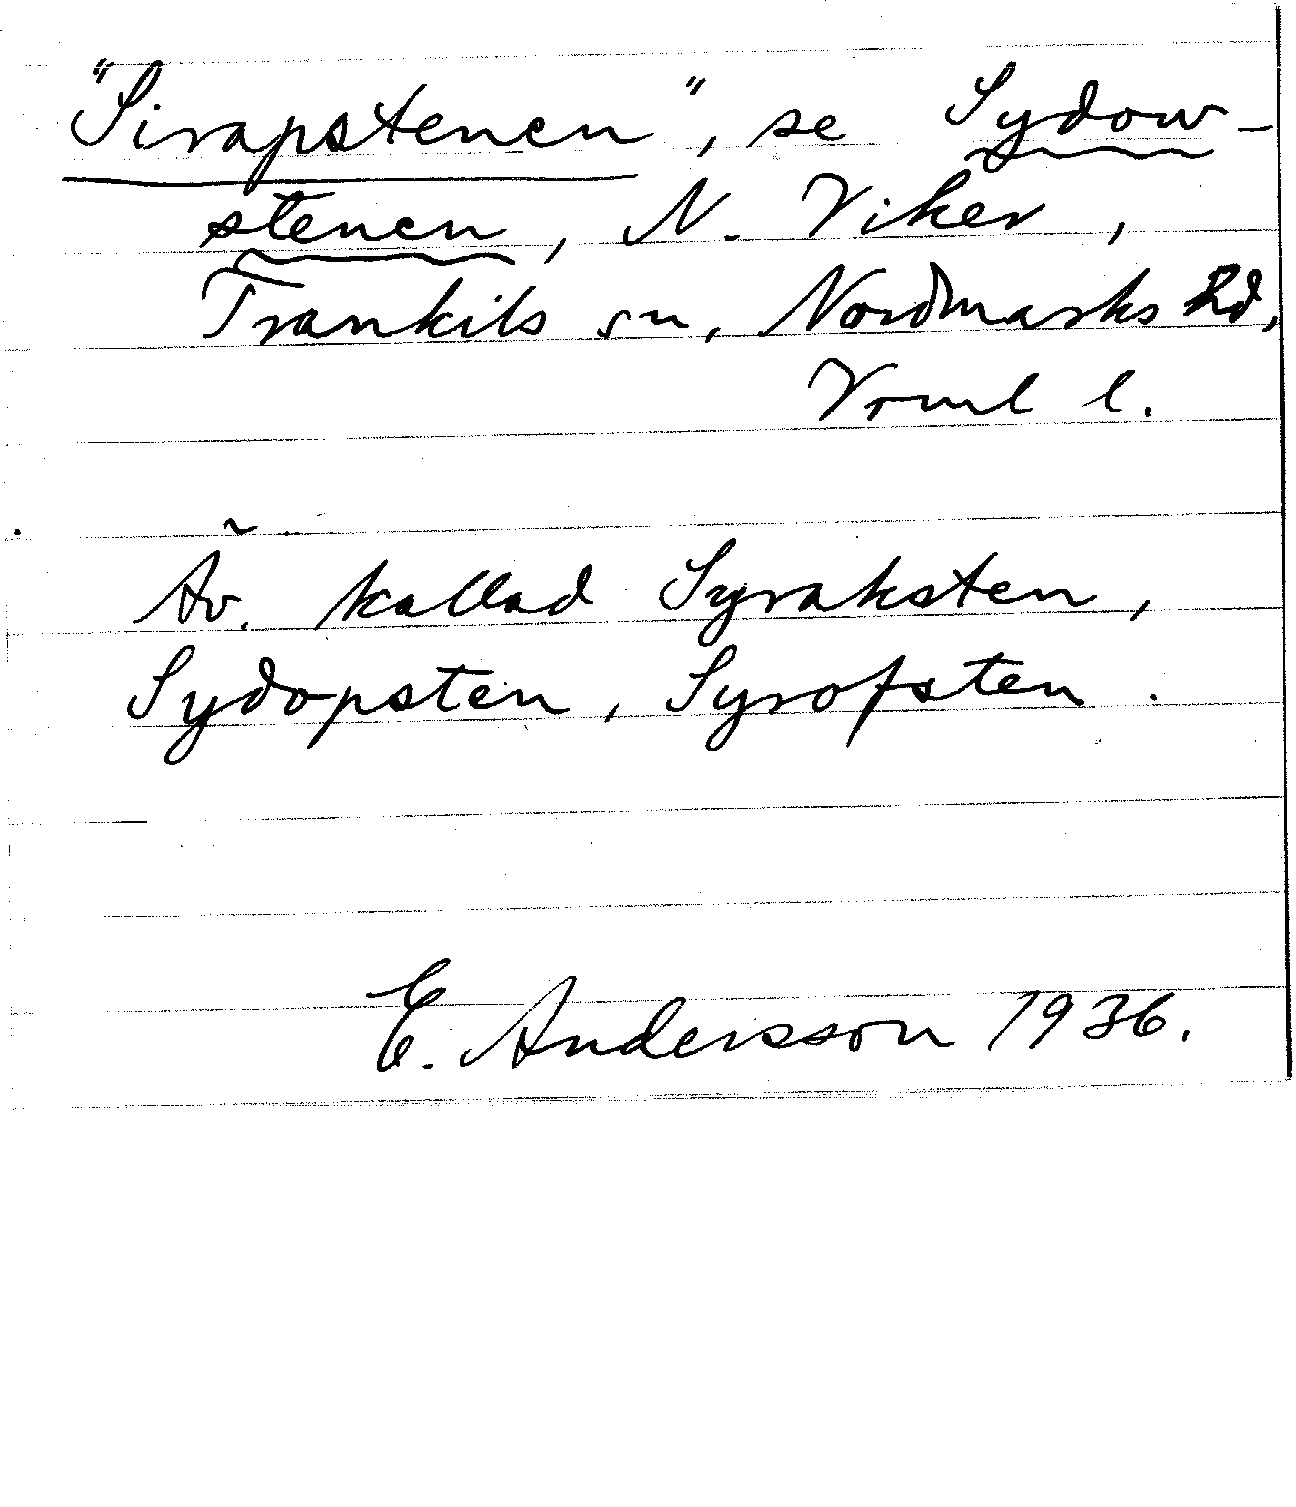 "Sirapstenen", se Sydow-
stenen, N. Viker,
Trankils sn, Nordmarks hd,
Vrml l.
Äv. kallad Syraksten,
Sydopsten, Syrofsten.
E. Andersson 1936.